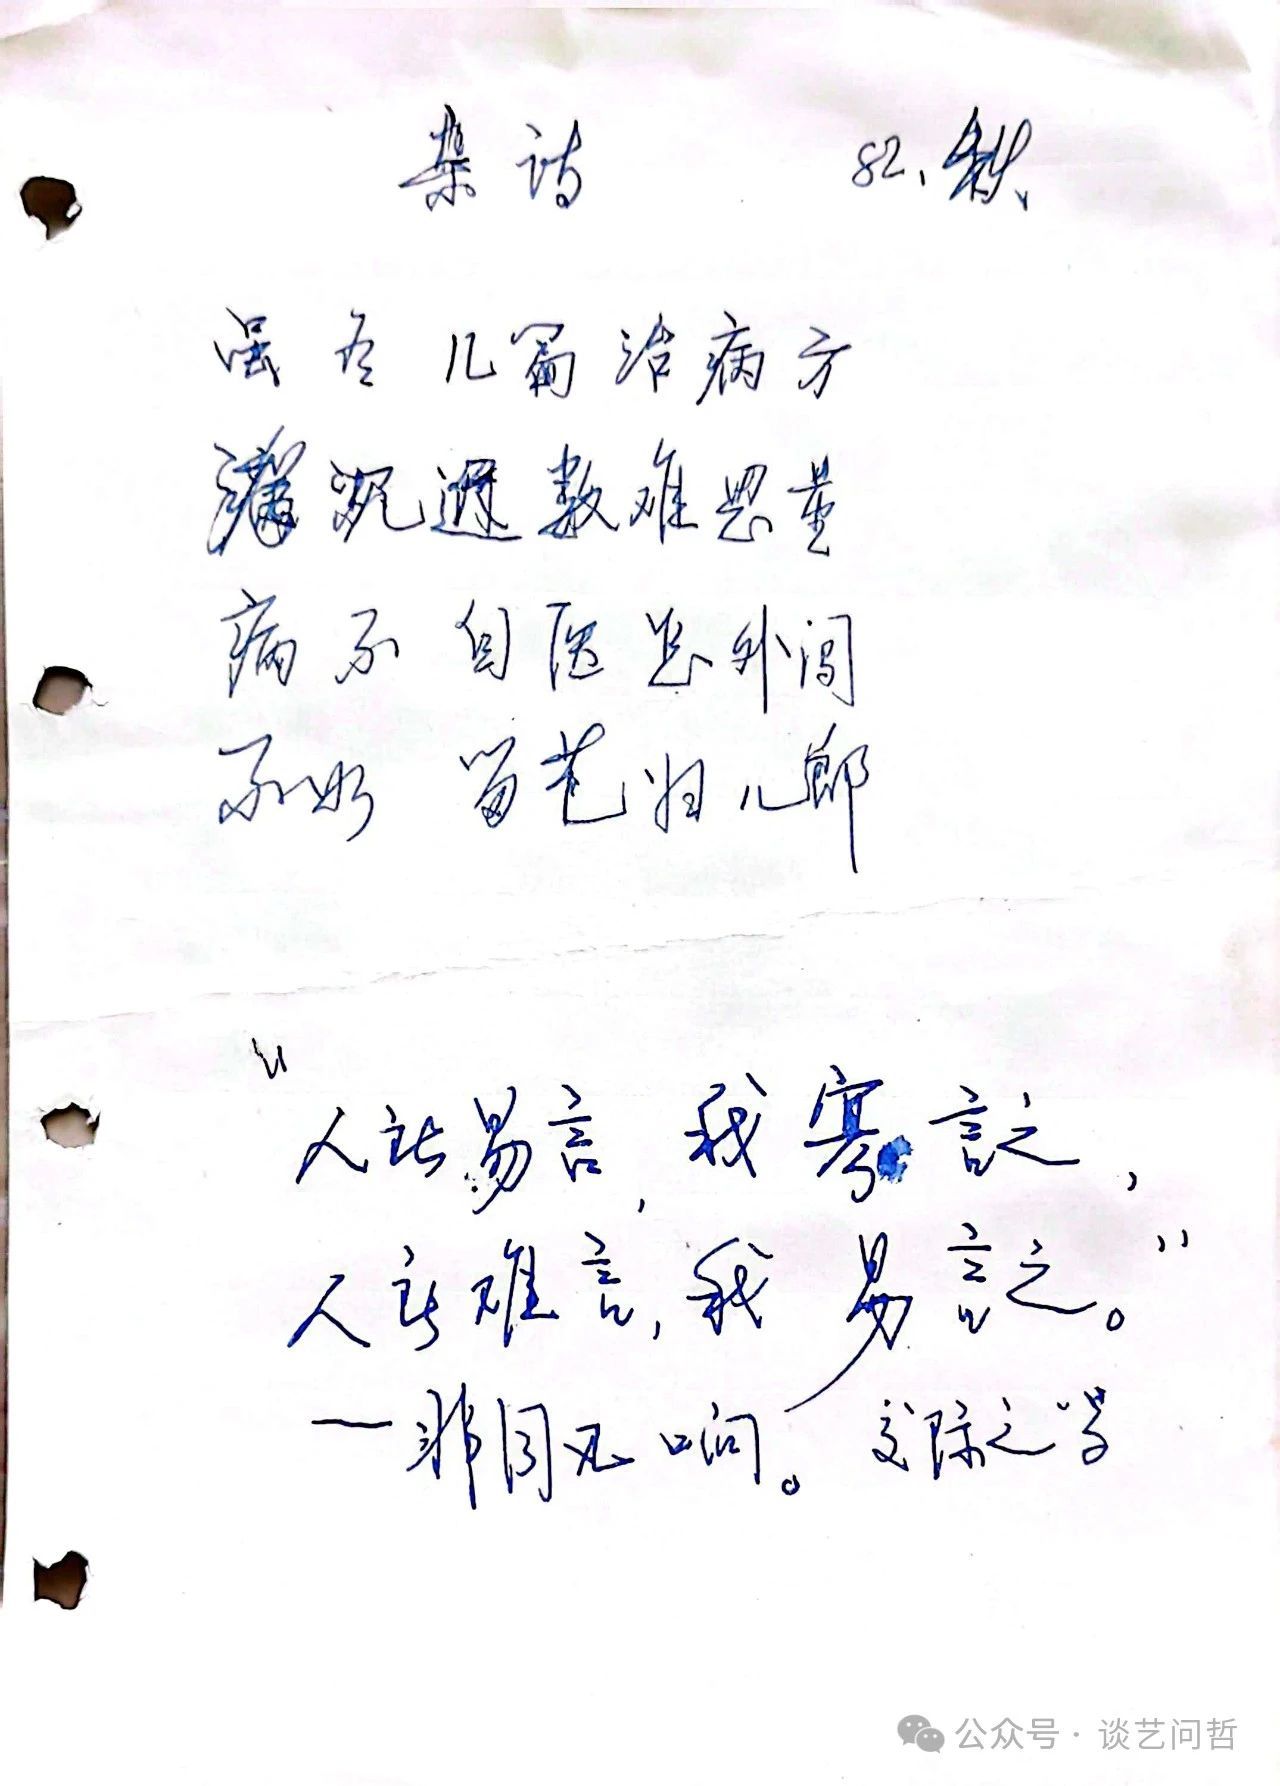 杂诗 82.秋
虽有几篇治病方
沉迷数难思量
病不自医总外闯
不如留艺归儿郎
"人所易言，我寡言之，
人所难言，我易言之。"
—非同凡响。交际之学
公众号·谈艺问哲